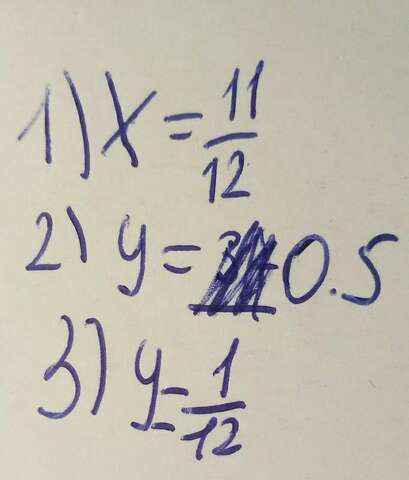 1) x = 11/12
2) y = 0.5
3) y = 1/12